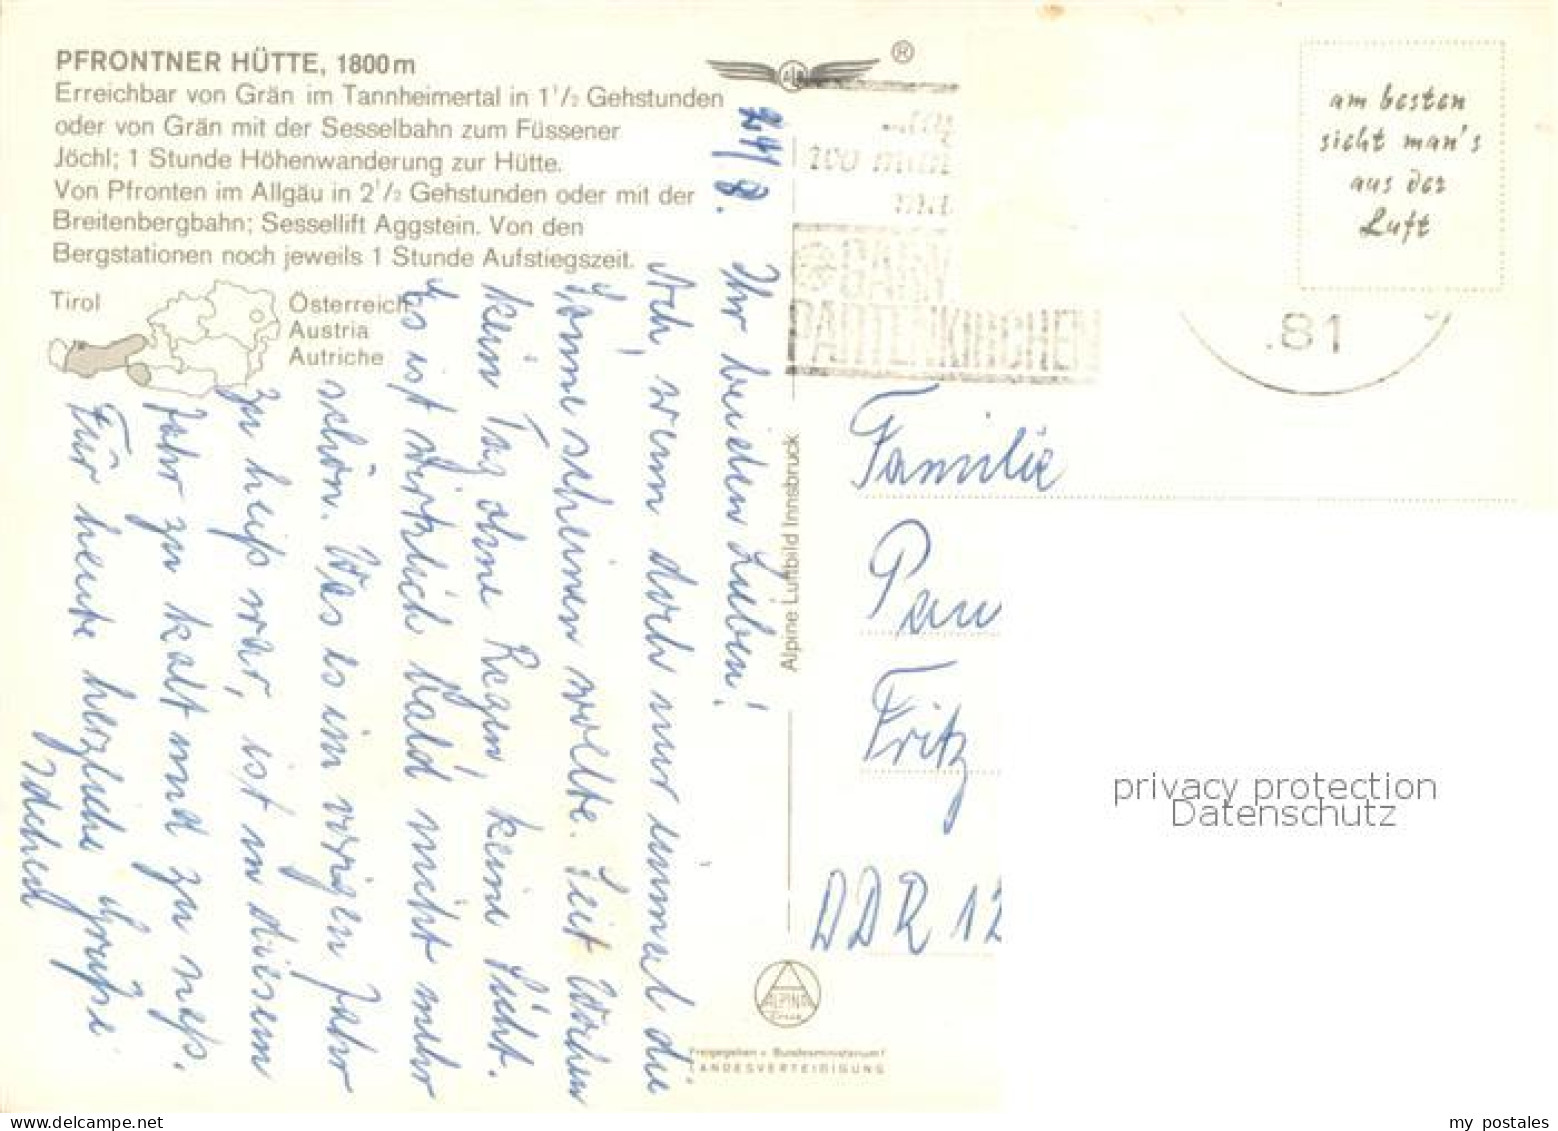 PFRONTNER HÜTTE, 1800 m
Erreichbar von Grän im Tannheimertal in 1 1/2 Gehstunden
oder von Grän mit der Sesselbahn zum Füssener
Jöchl; 1 Stunde Höhenwanderung zur Hütte.
Von Pfronten im Allgäu in 2 1/2 Gehstunden oder mit der
Breitenbergbahn; Sessellift Aggstein. Von den
Bergstationen noch jeweils 1 Stunde Aufstiegszeit.
Tirol
Österreich
Austria
Autriche
24/8.
Ihr beiden Lieben!
Ach, wenn doch nur einmal die
Sonne scheinen wollte. Seit Wochen
kein Tag ohne Regen, keine Sicht.
Es ist wirklich bald nicht mehr
schön. Was es im vorigen Jahr
zu heiß war, ist in diesem
Jahr zu kalt und zu naß.
Für heute herzliche Grüße
Alpine Luftbild Innsbruck
®
am besten
sicht man's
aus der
Luft
.81
Familie
Pau
Fritz
DDR 12
ALPINA
Freigegeben v. Bundesministerium f.
LANDESVERTEIDIGUNG
privacy protection
Datenschutz
www.delcampe.net
my_postales